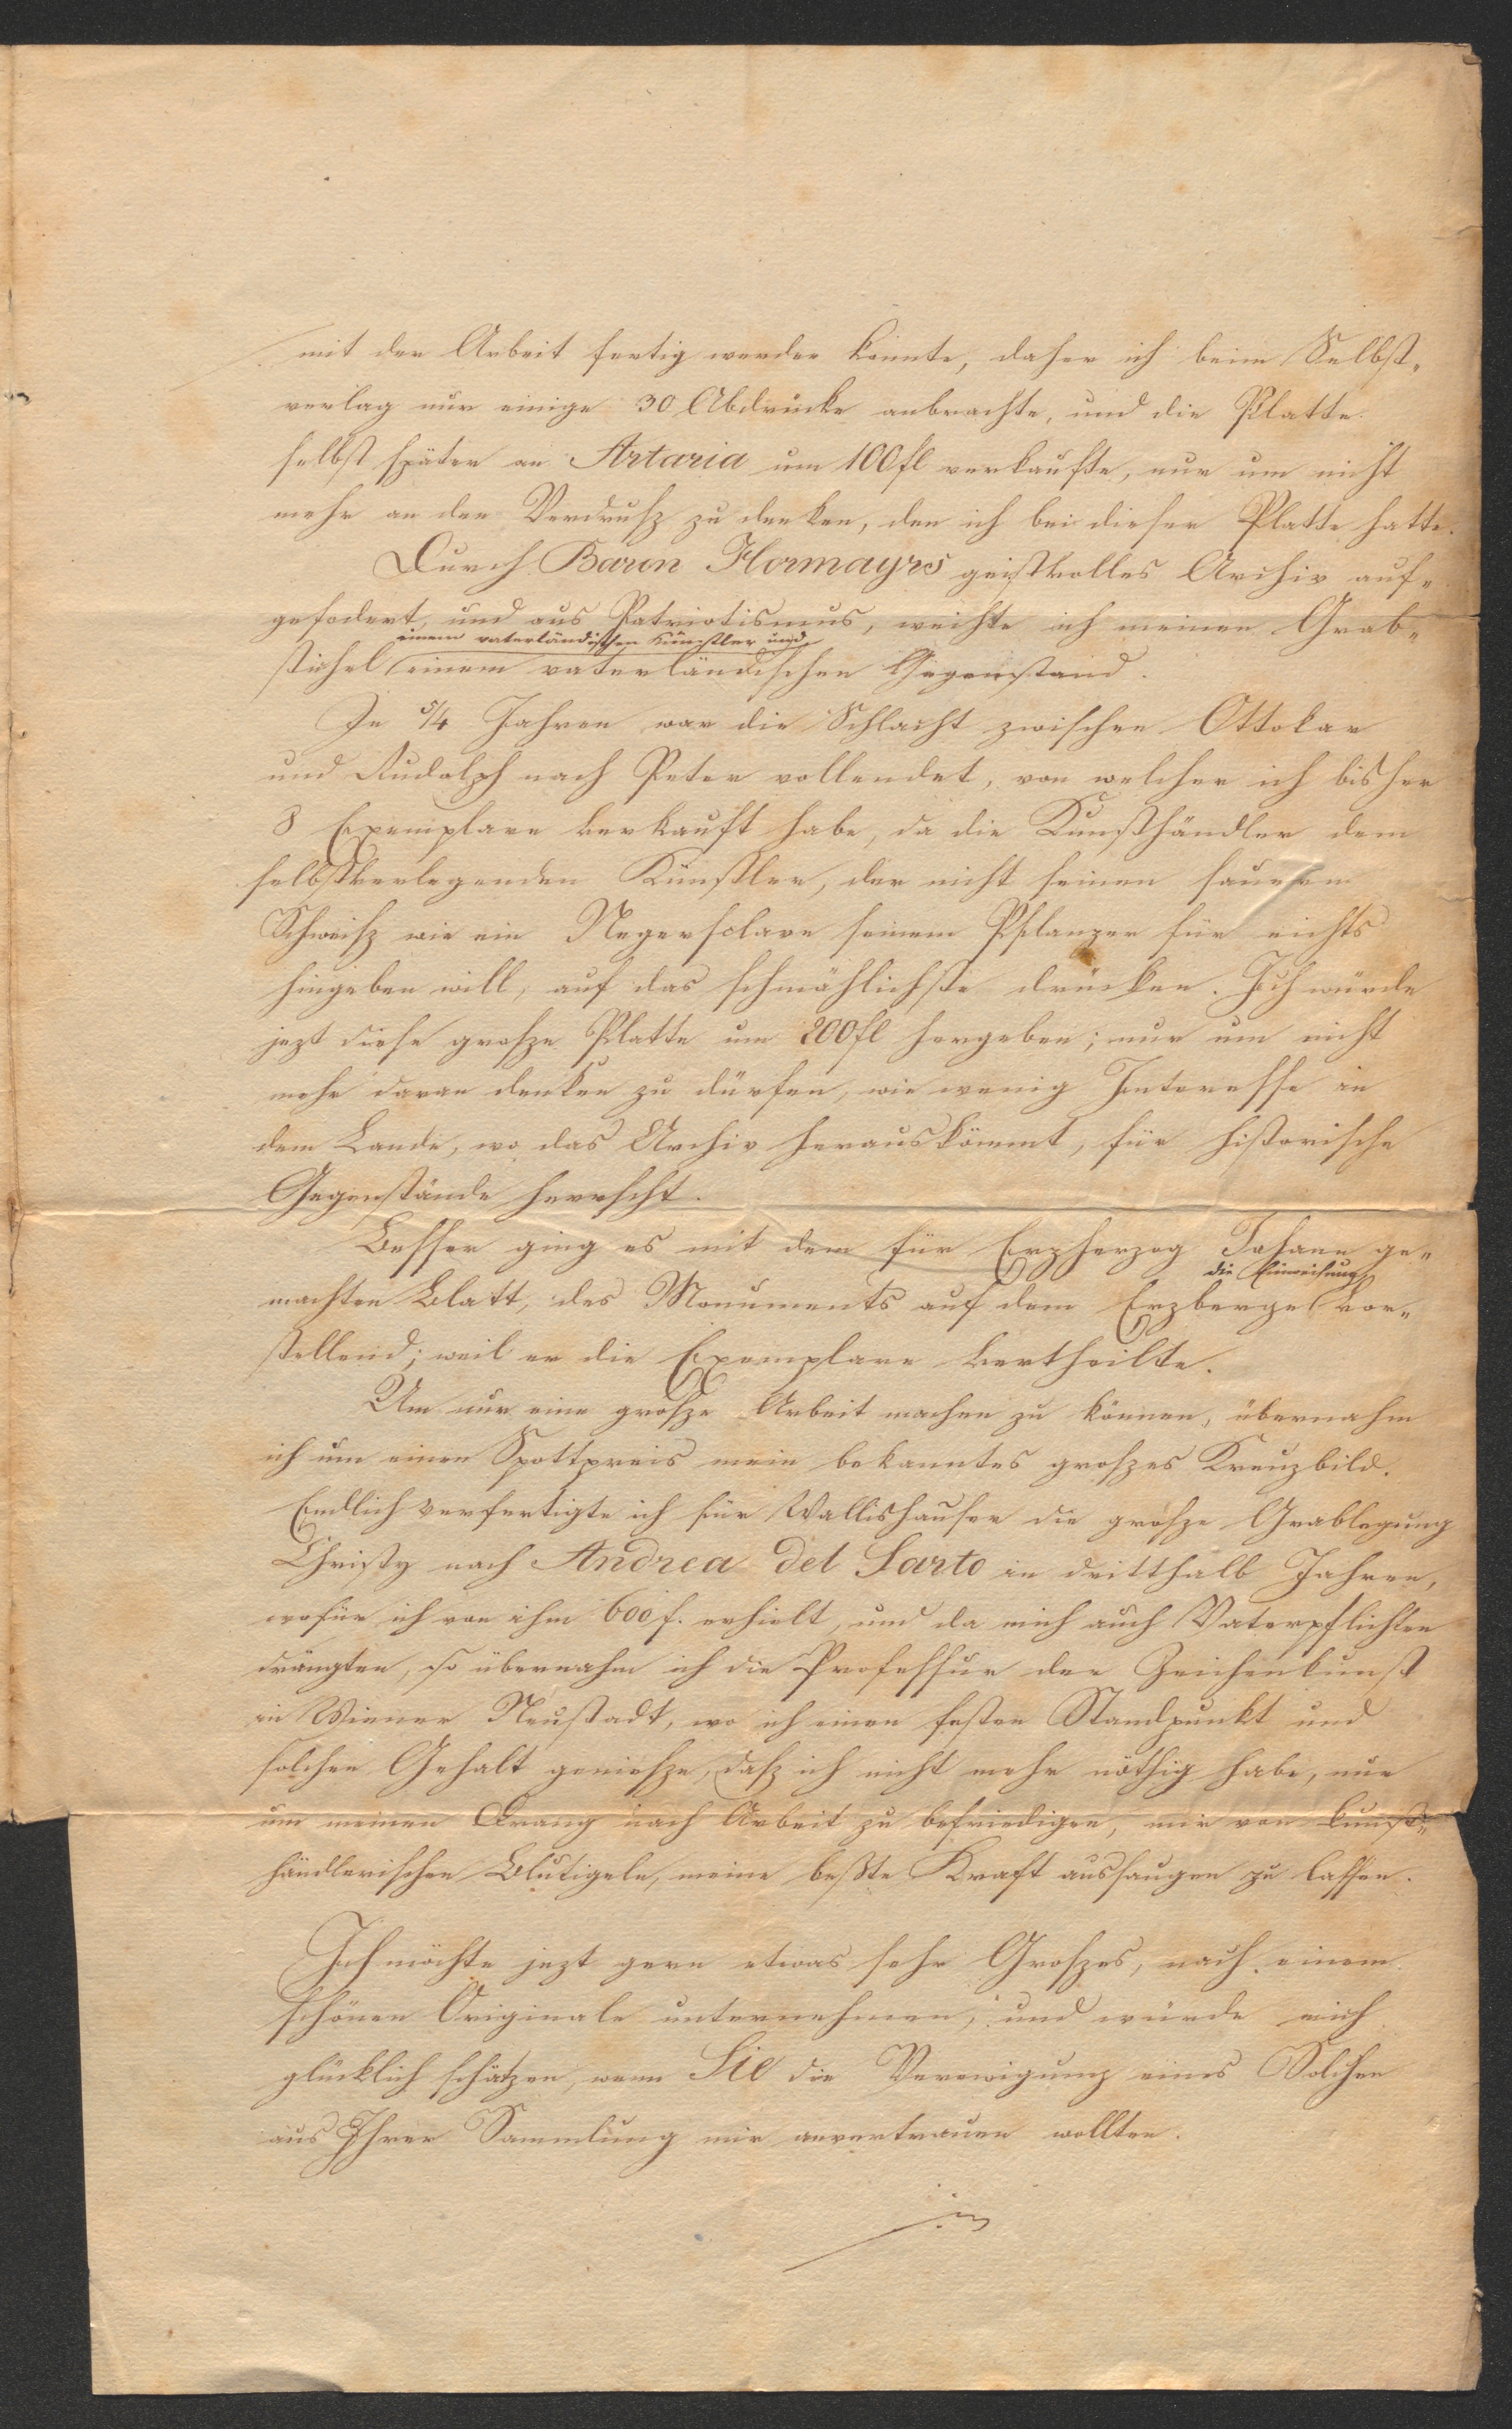 mit der Arbeit fertig werden konnte, daher ich beim Selbst„
verlag nur einige 30 Abdrücke anbrachte, und die Platte
selbst später an Artaria um 100 fl verkaufte, nur um nicht
mehr an den Verdrusz zu denken, den ich bei dieser Platte hatte.
Durch Baron Hormayrs geistvolles Archiv auf„
gefodert, und aus Patriotismus, weihte ich meinen Grab„
einem vaterländischen Künstler und
stichel einem vaterländischen Gegenstand.
In 5/4 Jahren war die Schlacht zwischen Ottokar
und Rudolph nach Peter vollendet, von welcher ich bisher
8 Exemplare verkauft habe, da die Kunsthändler dem
selbstverlegenden Künstler, der nicht seinen sauren
Schweisz wie ein Negersclave seinem Pflanzer für nichts
hingeben will, auf das schmählichste drücken. Ich würde
jezt diese grosze Platte um 200 fl hergeben; nur um nicht
mehr daran denken zu dürfen, wie wenig Interesse in
dem Lande, wo das Archiv herauskömmt, für historische
Gegenstände herrscht.
Besser ging es mit dem für Erzherzog Johann ge„
die Einweihung
machten Blatt, des Monuments auf dem Erzberge vor„
stellend; weil er die Exemplare vertheilte.
Um nur eine grosze Arbeit machen zu können, übernahm
ich um einen Spottpreis mein bekanntes groszes Kreuzbild.
Endlich verfertigte ich für Wallishauser die grosze Grablegung
Christy nach Andrea del Sarto in dritthalb Jahren,
wofür ich von ihm 600 f. erhielt, und da mich auch Vaterpflichten
drängten, so übernahm ich die Professur der Zeichenkunst
in Wiener Neustadt, wo ich einen festen Standpunkt und
solchen Gehalt geniesze, dasz ich nicht mehr nöthig habe, nur
um meinen Drang nach Arbeit zu befriedigen, mir von kunst„
händlerischen Blutigeln, meine beßte Kraft aussaugen zu lassen.
Ich möchte jezt gern etwas sehr Groszes, nach einem
schönen Originale unternehmen, und würde mich
glücklich schätzen, wenn Sie die Verewigung eines Solchen
aus Ihrer Sammlung mir anvertrauen wollten.